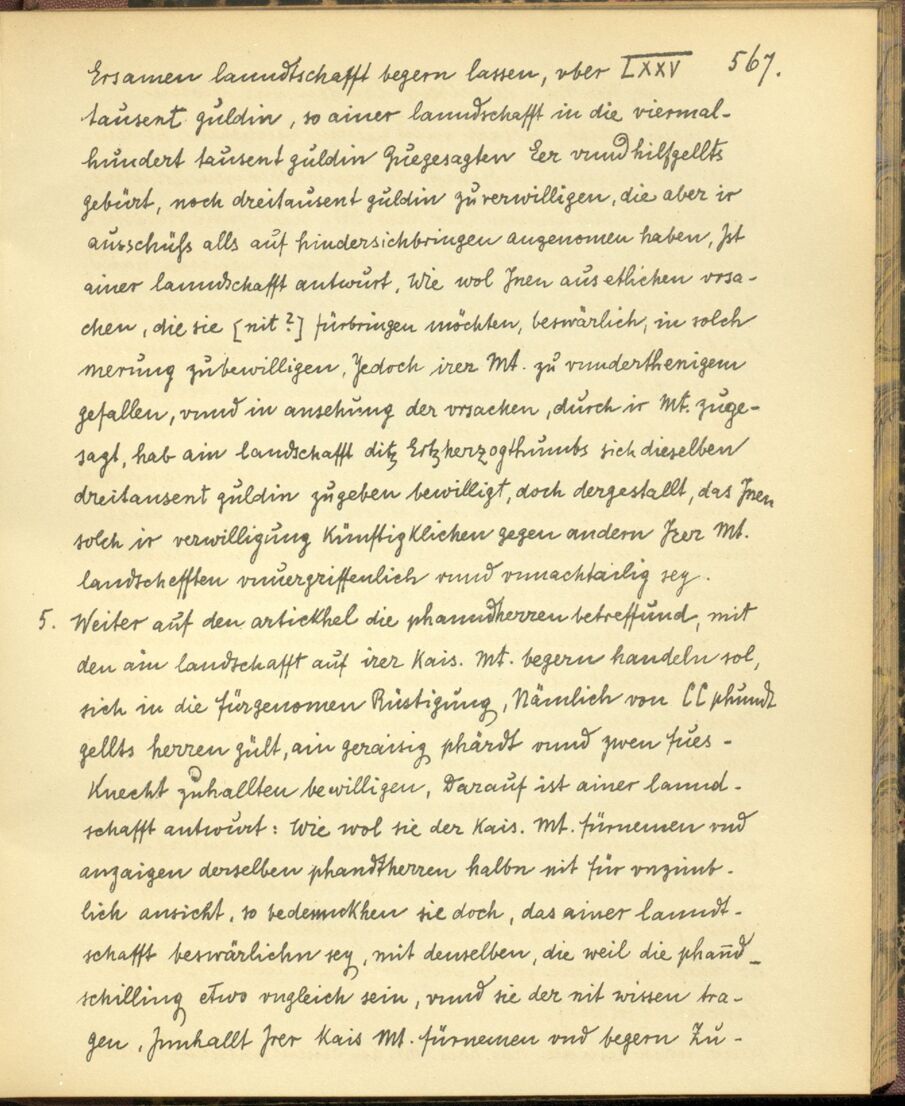 567.
Ersamen lanndtschafft begern lassen, vber LXXV
tausent guldin, so ainer lanndschafft in die viermal-
hundert tausent guldin Zuegesagten Eer vnnd hilfgellts
gebürt, noch dreitausent guldin zuverwilligen, die aber ir
ausschüss alls auf hindersichbringen angenomen haben, Ist
ainer lanndschafft antwurt, Wie wol Inen aus etlichen vrsa-
chen, die sie [nit?] fürbringen möchten, beswärlich, in solch
merung zubewilligen, Jedoch irer Mt. zu vnnderthenigem
gefallen, vnnd in ansehung der vrsachen, durch ir Mt. zuge-
sagt, hab ain landschafft ditz Ertzherzogthumbs sich dieselben
dreitausent guldin zugeben bewilligt, doch dergestallt, das Inen
solch ir verwilligung künftigklichen gegen andern Irer Mt.
landschefften vnuergriffenlich vnnd vnnachtailig sey.
5. Weiter auf den artickhel die phanndherren betreffund, mit
den ain landtschafft auf irer Kais. Mt. begern handeln sol,
sich in die fürgenomen Rüstigung, Nämlich von CC phundt
gellts herren gült, ain geraisig phärdt vnnd zwen fues-
Knecht zuhallten bewilligen, Darauf ist ainer lannd-
schafft antwurt: Wie wol sie der Kais. Mt. fürnemen vnd
anzaigen derselben phandtherren halbn nit für vnzimb-
lich ansicht, so bedennckhen sie doch, das ainer lanndt-
schafft beswärlichn sey, mit denselben, die weil die phannd-
schilling etwo vngleich sein, vnnd sie der nit wissen tra-
gen, Innhallt Irer Kais Mt. fürnemen vnd begern Zu-